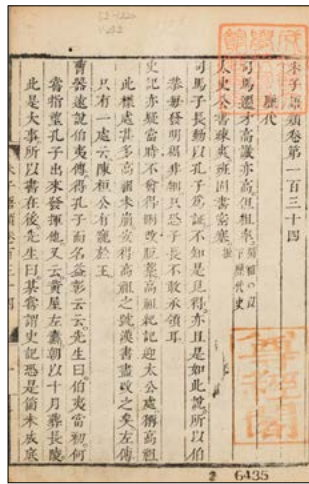 朱子語類卷第一百三十四
歷代一
司馬遷才高識亦高但粗率
太史公書疎爽班固書密塞
司馬子長動以孔子為證不知是見得亦且是如此說所以伯
恭每發明得非細只恐子長不敢承領耳
史記亦疑當時不曾得刪改脫藁高祖紀記迎太公處稱高祖
此樣處甚多高祖未崩安得高祖之號漢書盡改之矣左傳
只有一處云陳桓公有寵於王
曹器遠說伯夷傳得孔子而名益彰云云先生曰伯夷當初何
嘗指望孔子出來發揮他又云黃屋左纛朝以十月葬長陵
此是大事所以書在後先生曰某嘗謂史記恐是箇未成底
2 6435